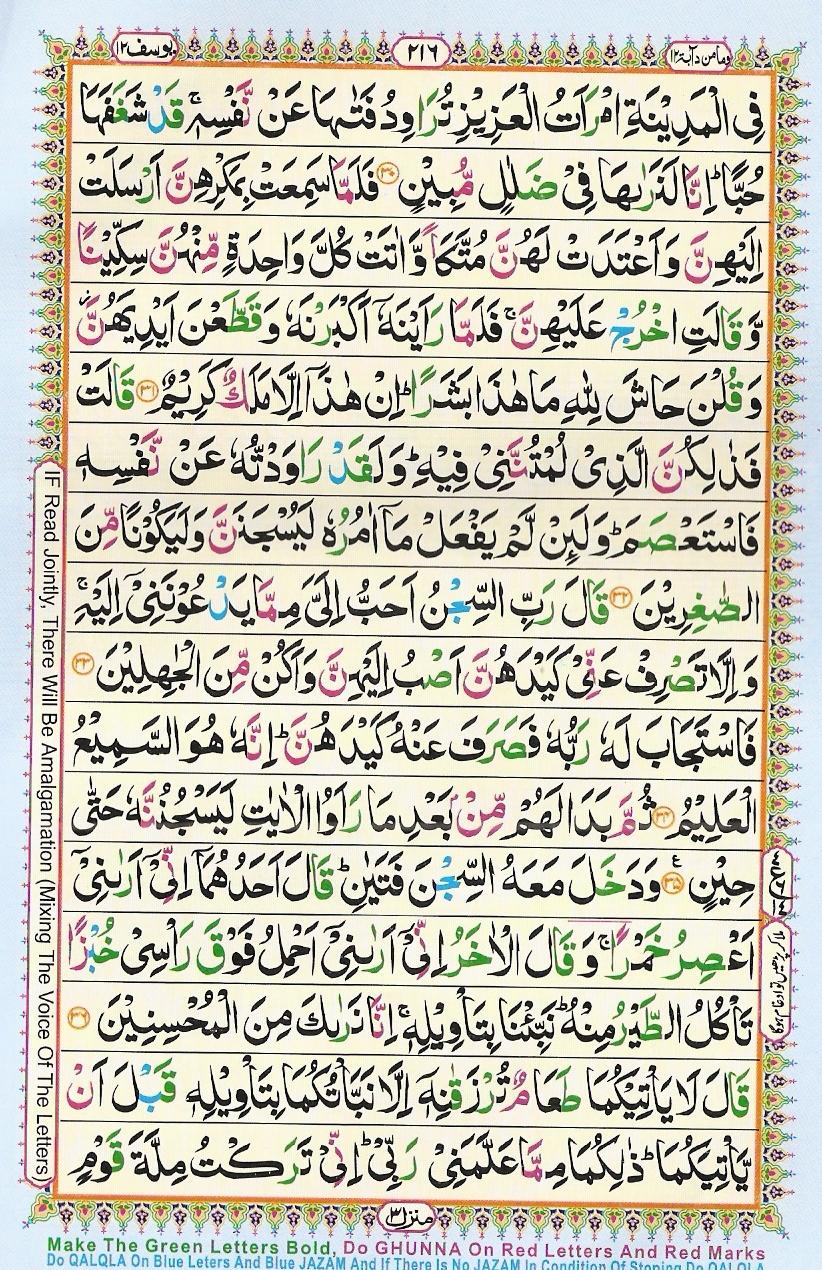 ومامن دآبة ١٢
٢١٦
يوسف ١٢
فِى الْمَدِيْنَةِ امْرَاَتُ الْعَزِيْزِ تُرَاوِدُ فَتٰىهَا عَنْ نَّفْسِهٖ ۚ قَدْ شَغَفَهَا
حُبًّا ؕ اِنَّا لَنَرٰىهَا فِىْ ضَلٰلٍ مُّبِيْنٍ ﴿۳۰﴾ فَلَمَّا سَمِعَتْ بِمَكْرِهِنَّ اَرْسَلَتْ
اِلَيْهِنَّ وَاَعْتَدَتْ لَهُنَّ مُتَّكَاً وَّاٰتَتْ كُلَّ وَاحِدَةٍ مِّنْهُنَّ سِكِّيْنًا
وَّقَالَتِ اخْرُجْ عَلَيْهِنَّ ۚ فَلَمَّا رَاَيْنَهٗۤ اَكْبَرْنَهٗ وَقَطَّعْنَ اَيْدِيَهُنَّ ز
وَقُلْنَ حَاشَ لِلّٰهِ مَا هٰذَا بَشَرًا ؕ اِنْ هٰذَاۤ اِلَّا مَلَكٌ كَرِيْمٌ ﴿۳۱﴾ قَالَتْ
فَذٰلِكُنَّ الَّذِىْ لُمْتُنَّنِىْ فِيْهِ ؕ وَلَقَدْ رَاوَدْتُّهٗ عَنْ نَّفْسِهٖ
فَاسْتَعْصَمَ ؕ وَلَئِنْ لَّمْ يَفْعَلْ مَاۤ اٰمُرُهٗ لَيُسْجَنَنَّ وَلَيَكُوْنًا مِّنَ
الصّٰغِرِيْنَ ﴿۳۲﴾ قَالَ رَبِّ السِّجْنُ اَحَبُّ اِلَىَّ مِمَّا يَدْعُوْنَنِىْۤ اِلَيْهِ ۚ
وَاِلَّا تَصْرِفْ عَنِّىْ كَيْدَهُنَّ اَصْبُ اِلَيْهِنَّ وَاَكُنْ مِّنَ الْجٰهِلِيْنَ ﴿۳۳﴾
فَاسْتَجَابَ لَهٗ رَبُّهٗ فَصَرَفَ عَنْهُ كَيْدَهُنَّ ؕ اِنَّهٗ هُوَ السَّمِيْعُ
الْعَلِيْمُ ﴿۳۴﴾ ثُمَّ بَدَا لَهُمْ مِّنْۢ بَعْدِ مَا رَاَوُا الْاٰيٰتِ لَيَسْجُنُنَّهٗ حَتّٰى
حِيْنٍ ﴿۳۵﴾ ع وَدَخَلَ مَعَهُ السِّجْنَ فَتَيٰنِ ؕ قَالَ اَحَدُهُمَاۤ اِنِّىْۤ اَرٰىنِىْۤ
اَعْصِرُ خَمْرًا ۚ وَقَالَ الْاٰخَرُ اِنِّىْۤ اَرٰىنِىْۤ اَحْمِلُ فَوْقَ رَاْسِىْ خُبْزًا
تَاْكُلُ الطَّيْرُ مِنْهُ ؕ نَبِّئْنَا بِتَاْوِيْلِهٖ ۚ اِنَّا نَرٰىكَ مِنَ الْمُحْسِنِيْنَ ﴿۳۶﴾
قَالَ لَا يَاْتِيْكُمَا طَعَامٌ تُرْزَقٰنِهٖۤ اِلَّا نَبَّاْتُكُمَا بِتَاْوِيْلِهٖ قَبْلَ اَنْ
يَّاْتِيَكُمَا ؕ ذٰلِكُمَا مِمَّا عَلَّمَنِىْ رَبِّىْ ؕ اِنِّىْ تَرَكْتُ مِلَّةَ قَوْمٍ
IF Read Jointly, There Will Be Amalgamation (Mixing The Voice Of The Letters)
ملا کر پڑھیں تو ادغام ہوگا
منزل ۳
Make The Green Letters Bold, Do GHUNNA On Red Letters And Red Marks
Do QALQLA On Blue Leters And Blue JAZAM And If There Is No JAZAM In Condition Of Stoping Do QALQLA